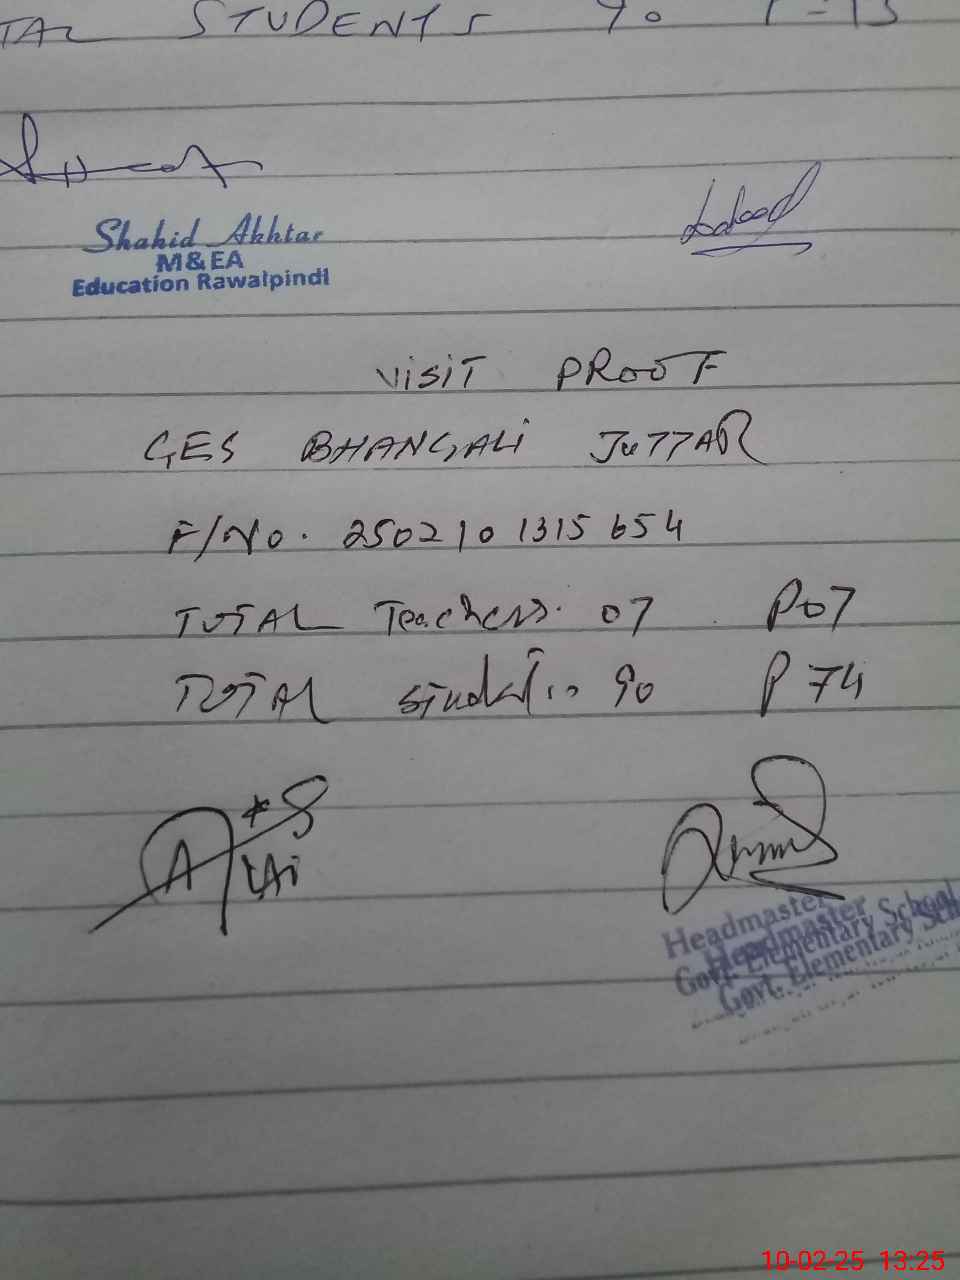 TAL STUDENTS 90
Shahid Akhtar
M&EA
Education Rawalpindi
VISIT PROOF
GES BHANGALI JUTTAR
F/No. 250210 1315 654
TOTAL Teachers. 07 P07
TOTAL student.. 90 P 74
Headmaster
Headmaster
Govt. Elementary School
Govt. Elementary
10-02-25 13:25